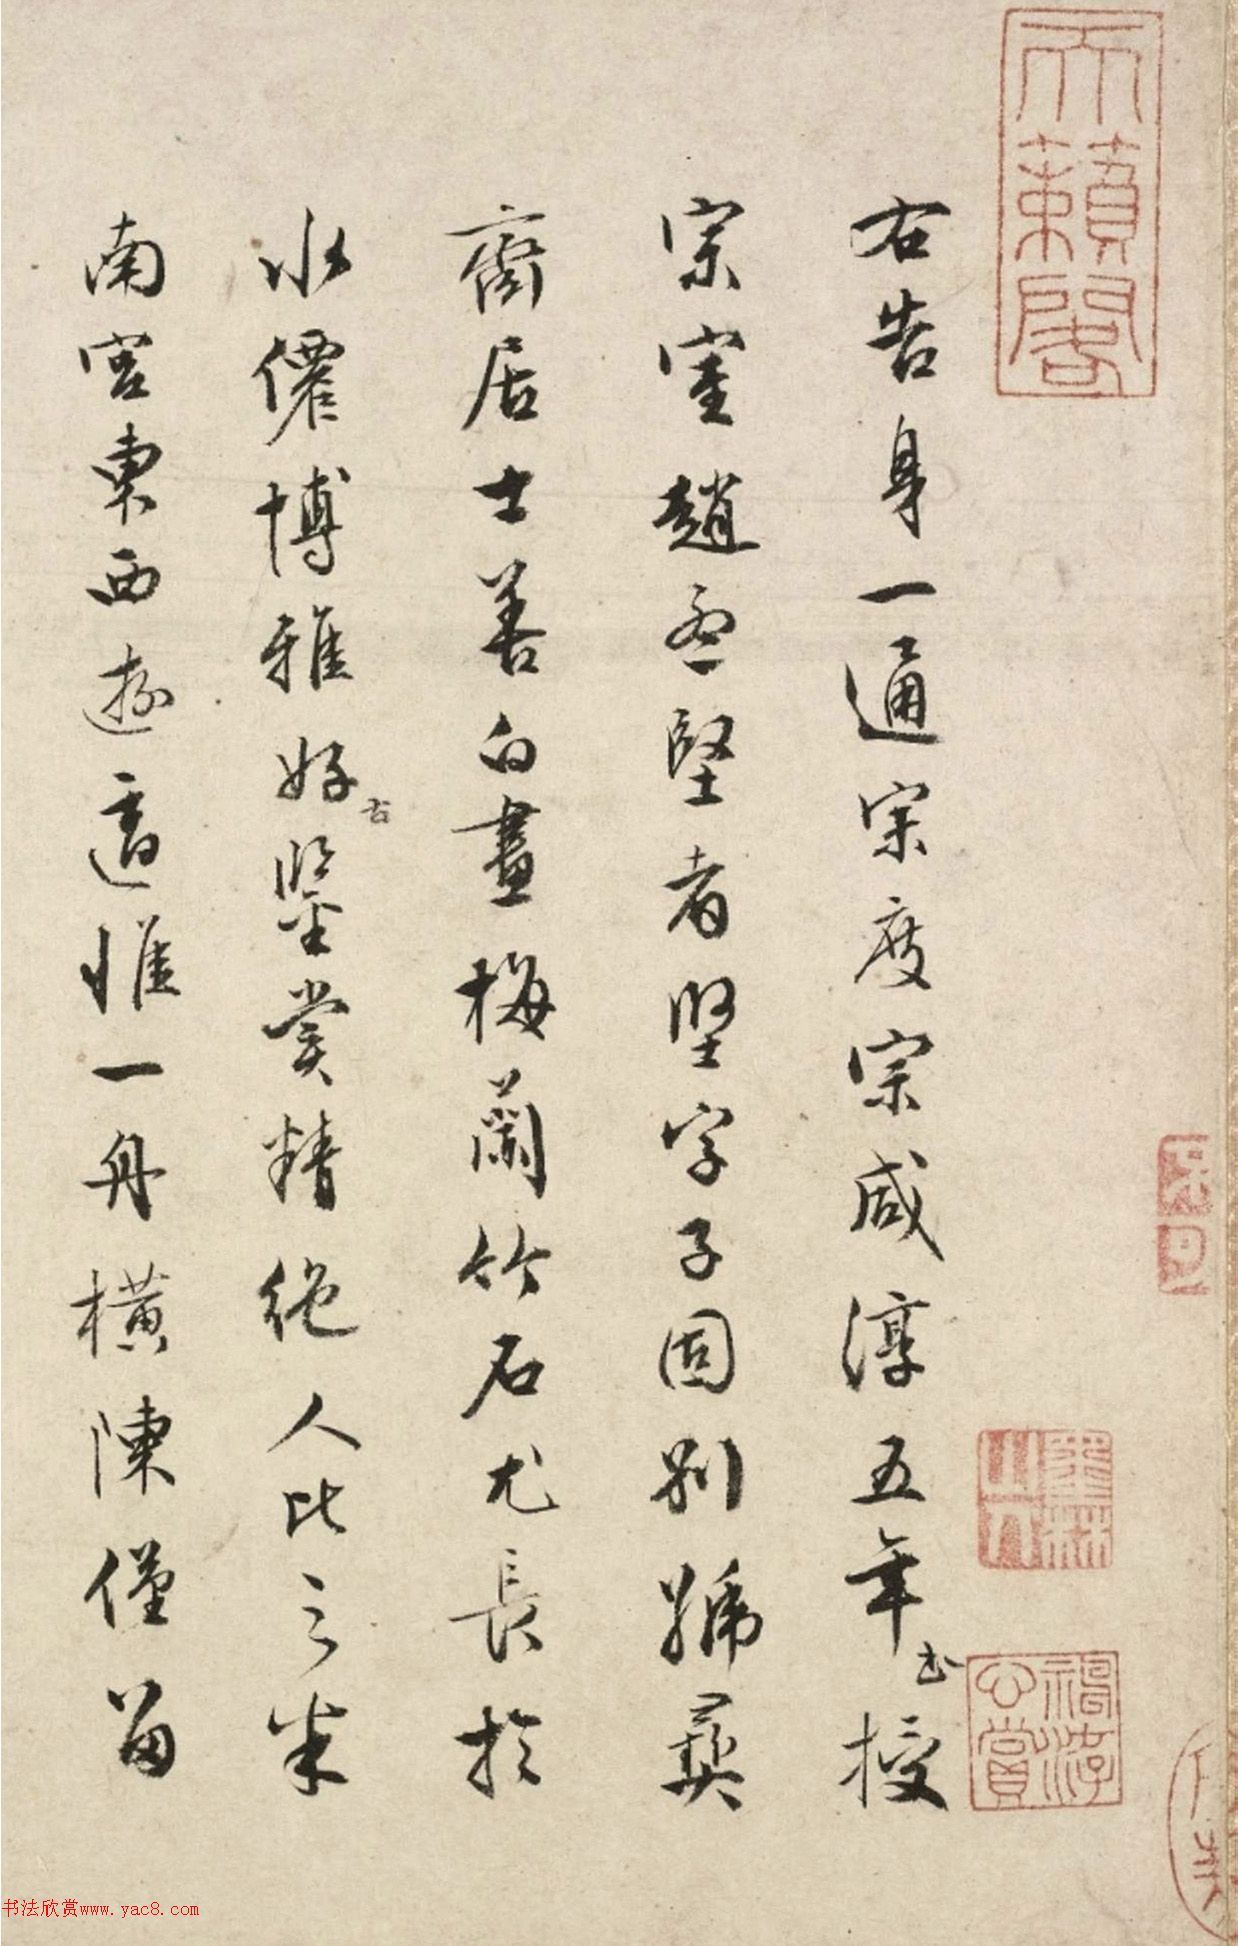 右告身一通宋度宗咸淳五年出授
宗室趙孟堅者堅字子固别號彝
齋居士善白畫梅蘭竹石尤長於
水僊博雅好古鑒賞精絶人比之米
南宮東西遊適惟一舟橫陳僅留
天籟閣
墨林山人
神游心賞
书法欣赏www.yac8.com